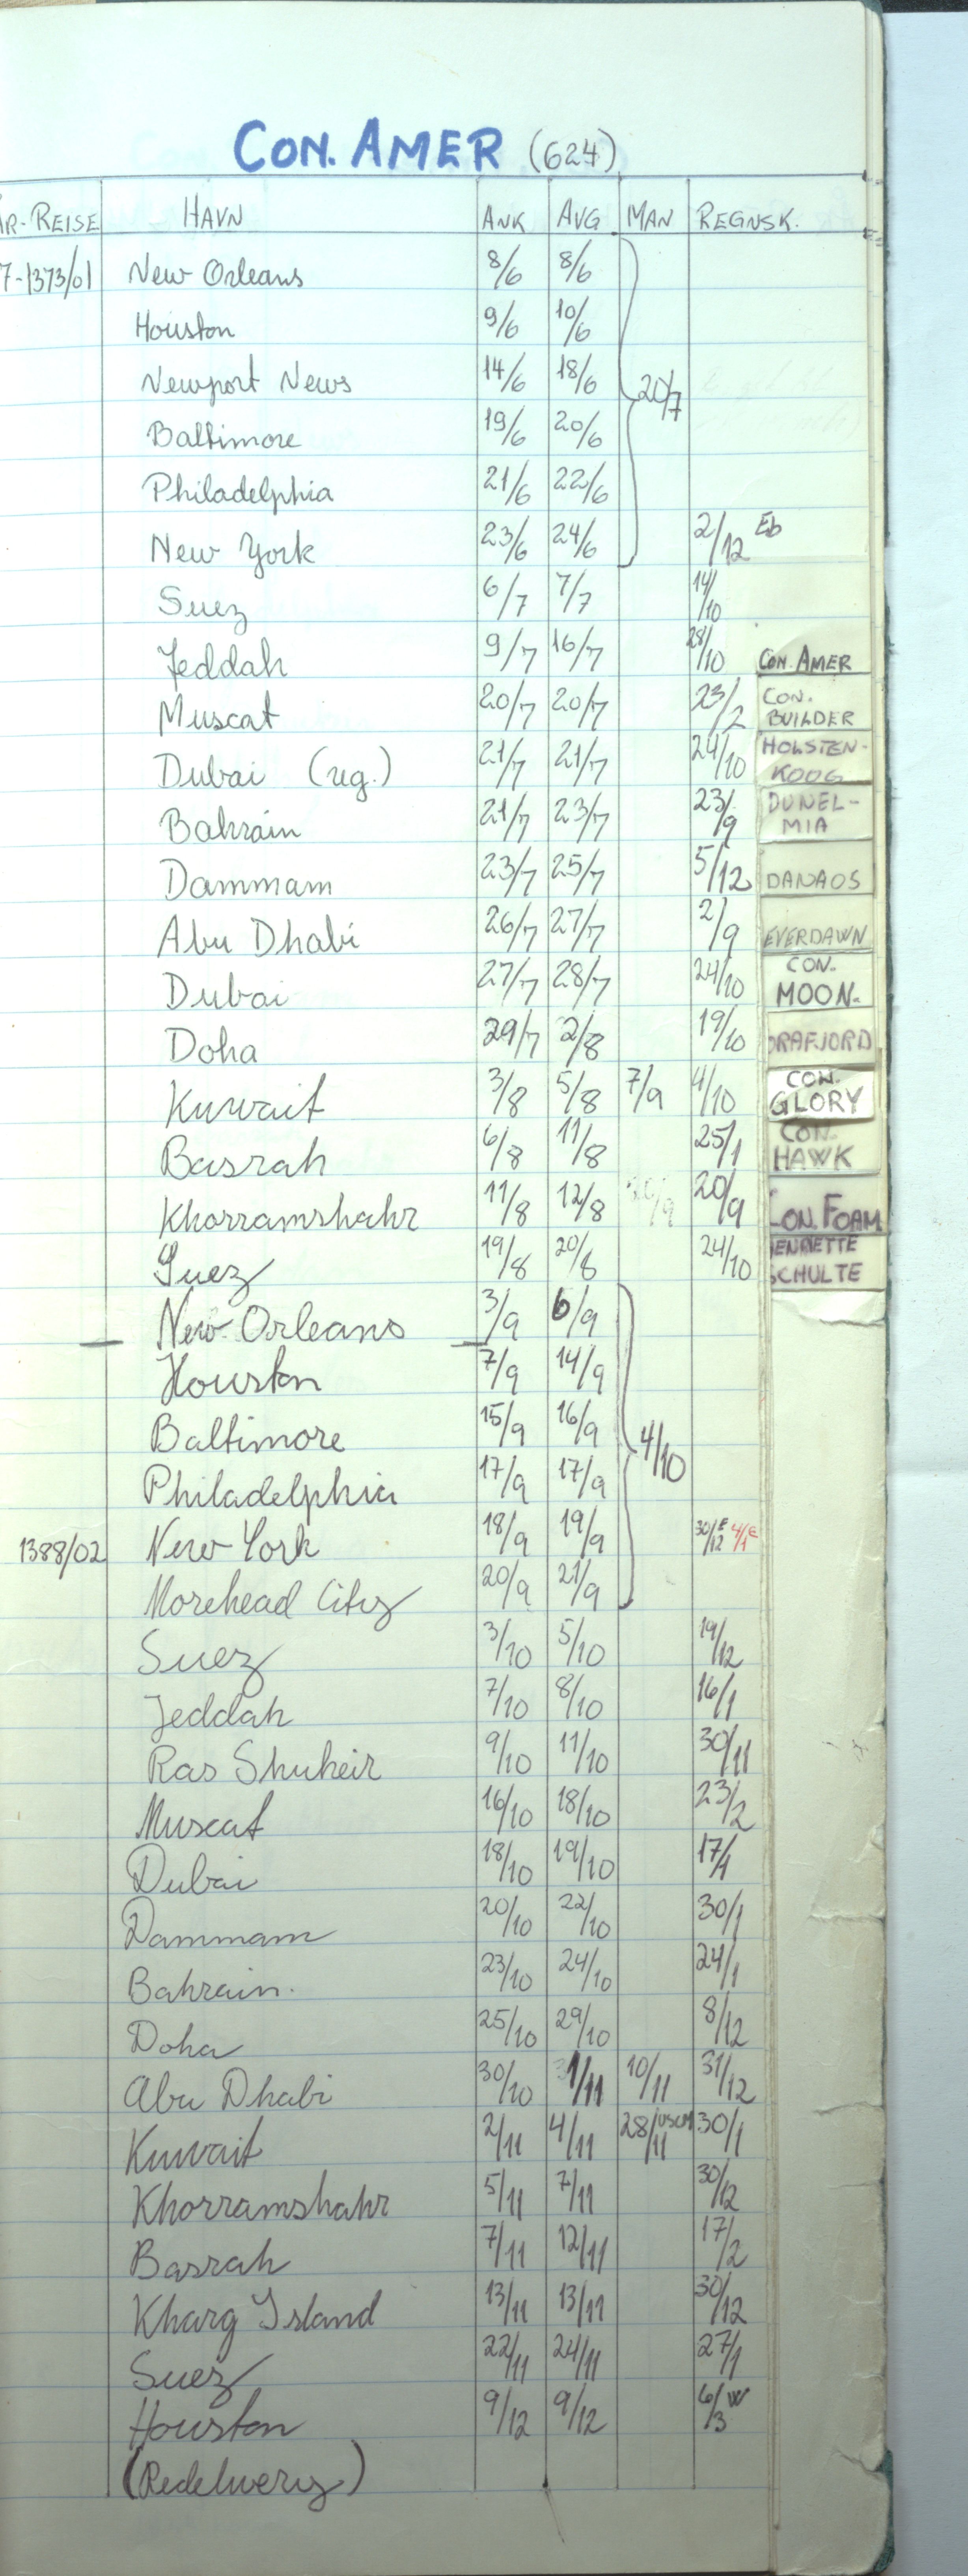 CON. AMER (624)
ÅR-REISE HAVN ANK AVG MAN REGNSK.
7-1373/01 New Orleans 8/6 8/6
Houston 9/6 10/6
Newport News 14/6 18/6 20/7
Baltimore 19/6 20/6
Philadelphia 21/6 22/6
New York 23/6 24/6 2/12 Eb
Suez 6/7 7/7 14/10
Jeddah 9/7 16/7 28/10 CON. AMER
Muscat 20/7 20/7 23/2 CON. BUILDER
Dubai (ug.) 21/7 21/7 24/10 HOLSTEN-KOOG
Bahrain 21/7 23/7 23/9 DUNEL-MIA
Dammam 23/7 25/7 5/12 DANAOS
Abu Dhabi 26/7 27/7 2/9 EVERDAWN
Dubai 27/7 28/7 24/10 CON. MOON.
Doha 29/7 2/8 19/10 DRAFJORD
Kuwait 3/8 5/8 7/9 4/10 CON. GLORY
Basrah 6/8 11/8 25/1 CON. HAWK
Khorramshahr 11/8 12/8 20/9 20/9 CON. FOAM
Suez 19/8 20/8 24/10 HENRIETTE SCHULTE
New Orleans 3/9 6/9
Houston 7/9 14/9
Baltimore 15/9 16/9 4/10
Philadelphia 17/9 17/9
1388/02 New York 18/9 19/9 30/12 E 4/1 E
Morehead City 20/9 21/9
Suez 3/10 5/10 19/12
Jeddah 7/10 8/10 16/1
Ras Shukeir 9/10 11/10 30/11
Muscat 16/10 18/10 23/2
Dubai 18/10 19/10 17/1
Dammam 20/10 22/10 30/1
Bahrain. 23/10 24/10 24/1
Doha 25/10 29/10 8/12
Abu Dhabi 30/10 1/11 10/11 31/12
Kuwait 2/11 4/11 28/11 USCM 30/1
Khorramshahr 5/11 7/11 30/12
Basrah 7/11 12/11 17/2
Kharg Island 13/11 13/11 30/12
Suez 22/11 24/11 27/1
Houston 9/12 9/12 6/3 W
(Redelivery)